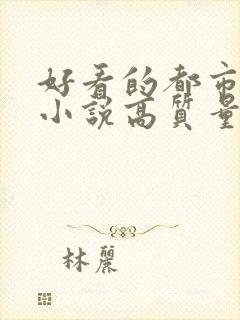 好看的都市
小說高質量
林麗